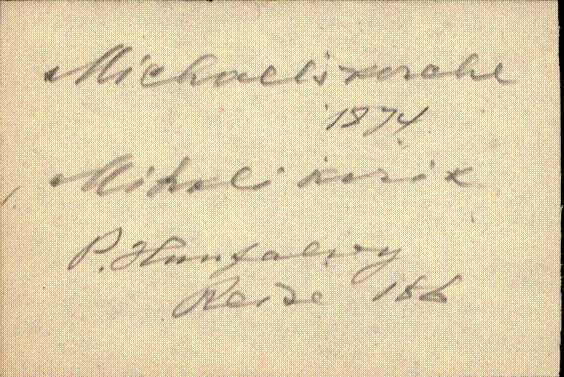 Michaeliskirche
1874.
Mihkli kirik
P. Hunfalvy
Reise 186